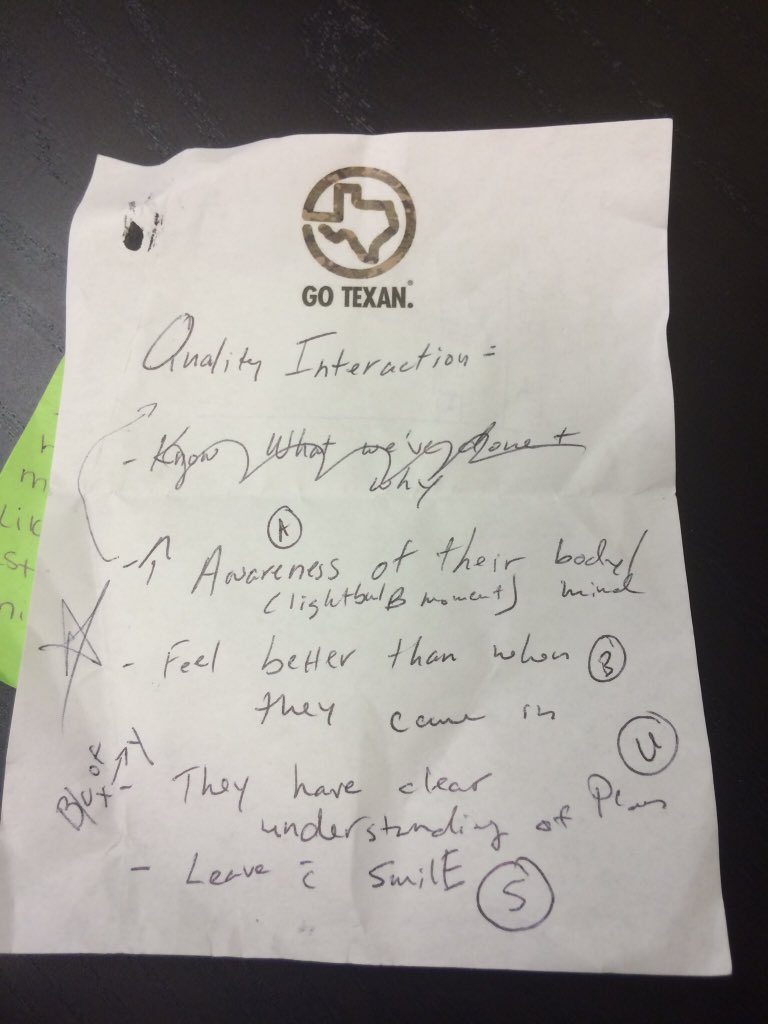 GO TEXAN.®
Quality Interaction =
- Know What we've done +
why
A
- ↑ Awareness of their body/
(lightbulB moment) mind
- Feel better than when B
they came in
U
- They have clear
understanding of Plan
- Leave c̄ SmilE S